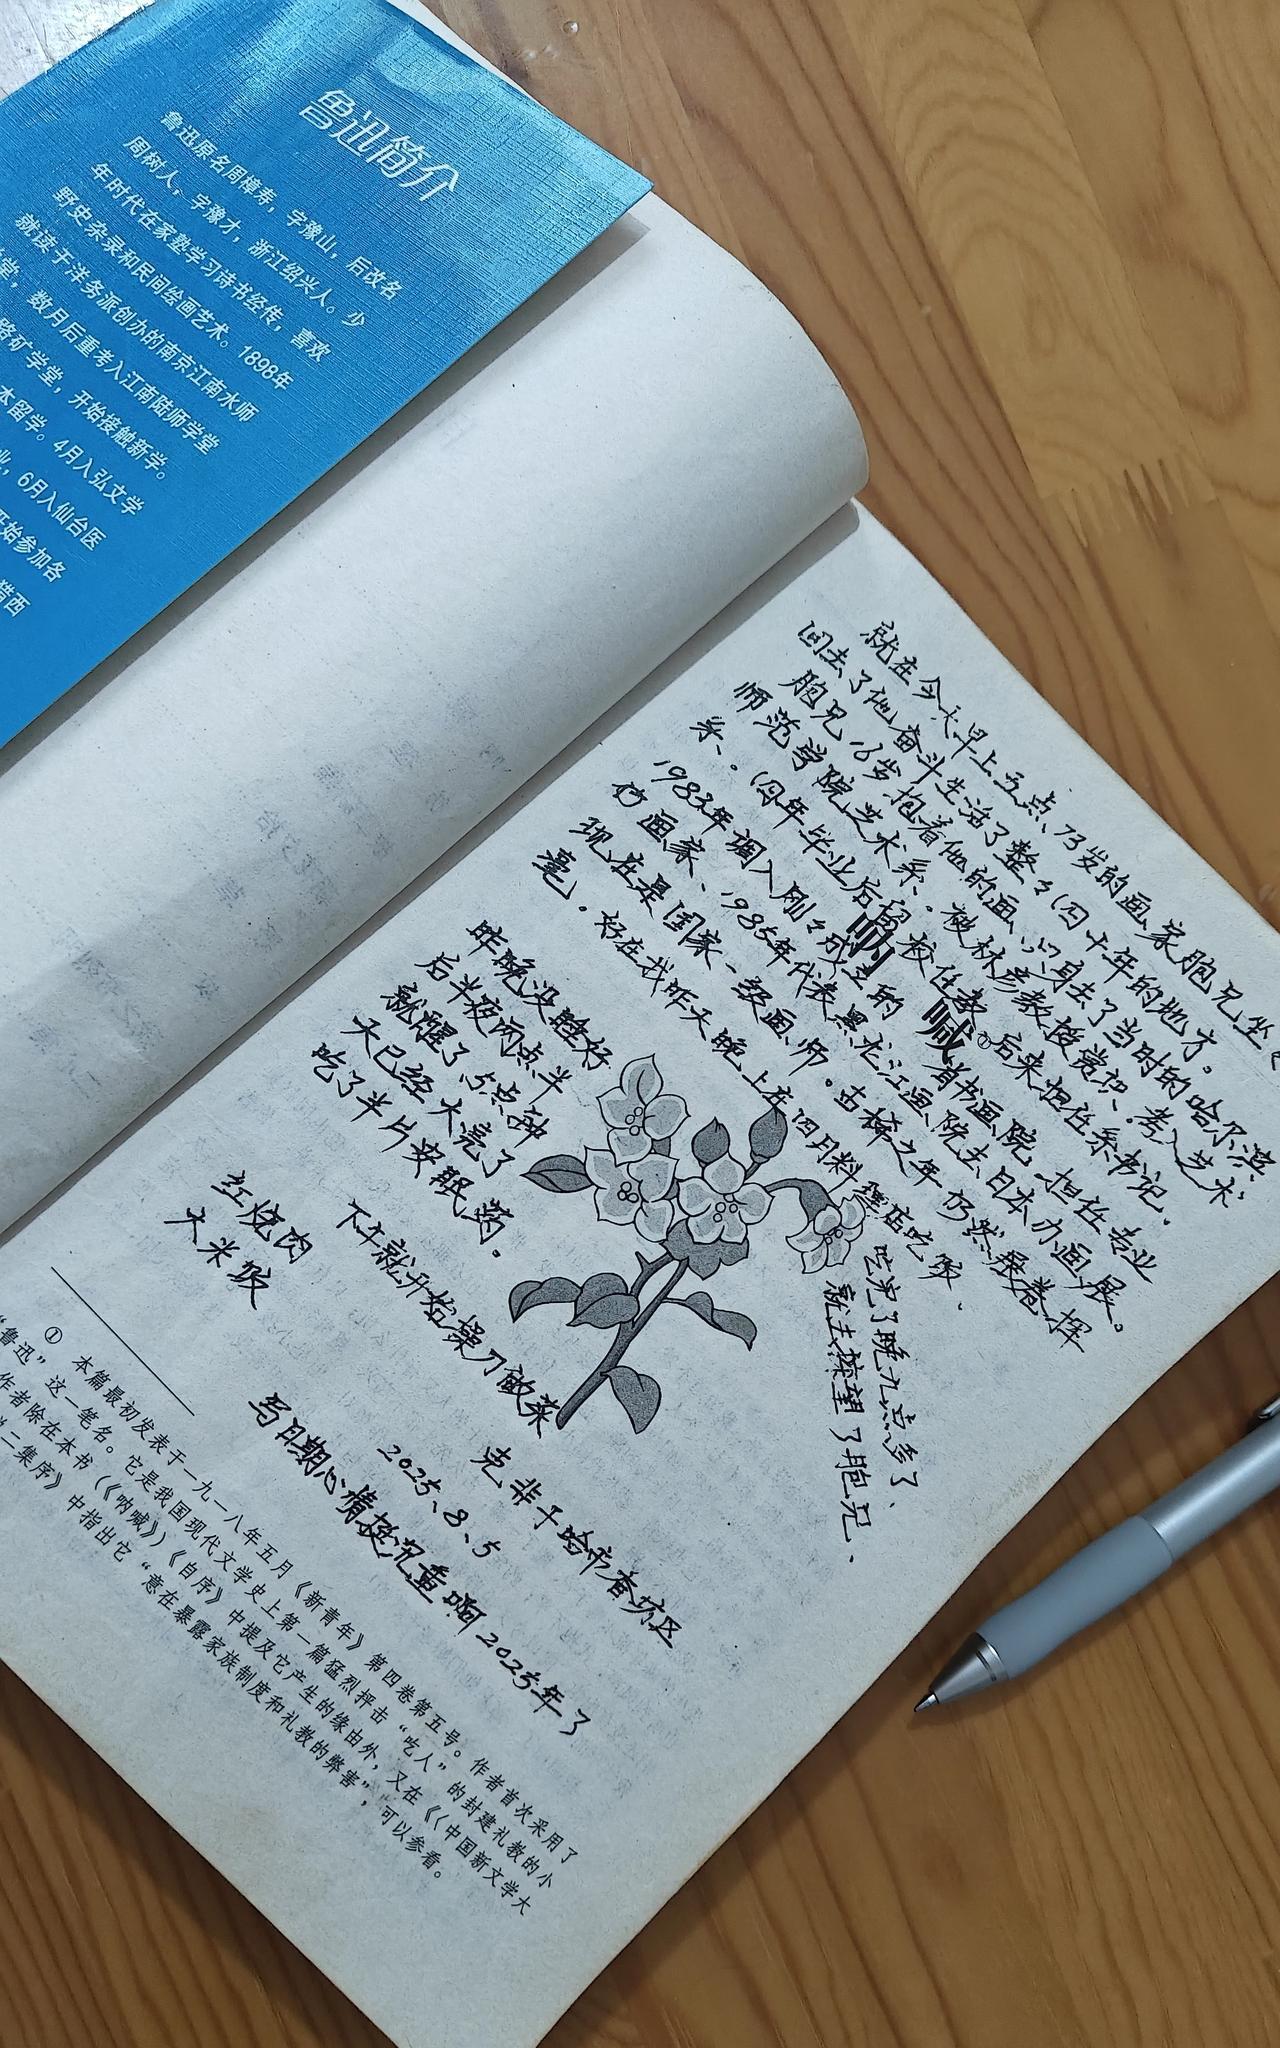 鲁迅简介
鲁迅原名周樟寿，字豫山，后改名
周树人，字豫才，浙江绍兴人。少
年时代在家塾学习诗书经传，喜欢
野史杂录和民间绘画艺术。1898年
就读于洋务派创办的南京江南水师
堂，数月后重考入江南陆师学堂
路矿学堂，开始接触新学。
本留学。4月入弘文学
业，6月入仙台医
开始参加各
猎西
就在今天早上五点、73岁的画家胞兄坐
回去了他奋斗生活了整々(四十年的地方。
胞兄16岁抱着他的画、只身去了当时的哈尔滨
师范学院艺术系。被林彦教授赏识、考入艺术
系。(四年毕业后留校任教。后来担任系书记。
1983年调入刚々成立的 省书画院、担任专业
的画家、1985年代表黑龙江画院去日本办画展。
现在是国家一级画师。古稀之年仍然展卷挥
毫。好在我昨天晚上在四月料理店吃饭、
吃完了晚九点多了、
就去探望了胞兄、
呐
喊①
昨晚没睡好
后半夜两点半
就醒了、5点钟
天已经大亮了
吃了半片安眠药。
下午就开始操刀做菜
红烧肉
大米饭
克非于哈市香坊区
2025、8、5
写日期心情挺沉重啊2025年了
① 本篇最初发表于一九一八年五月《新青年》第四卷第五号。作者首次采用了
“鲁迅”这一笔名。它是我国现代文学史上第一篇猛烈抨击“吃人”的封建礼教的小
作者除在本书（《呐喊》）《自序》中提及它产生的缘由外，又在《〈中国新文学大
二集序》中指出它“意在暴露家族制度和礼教的弊害”，可以参看。